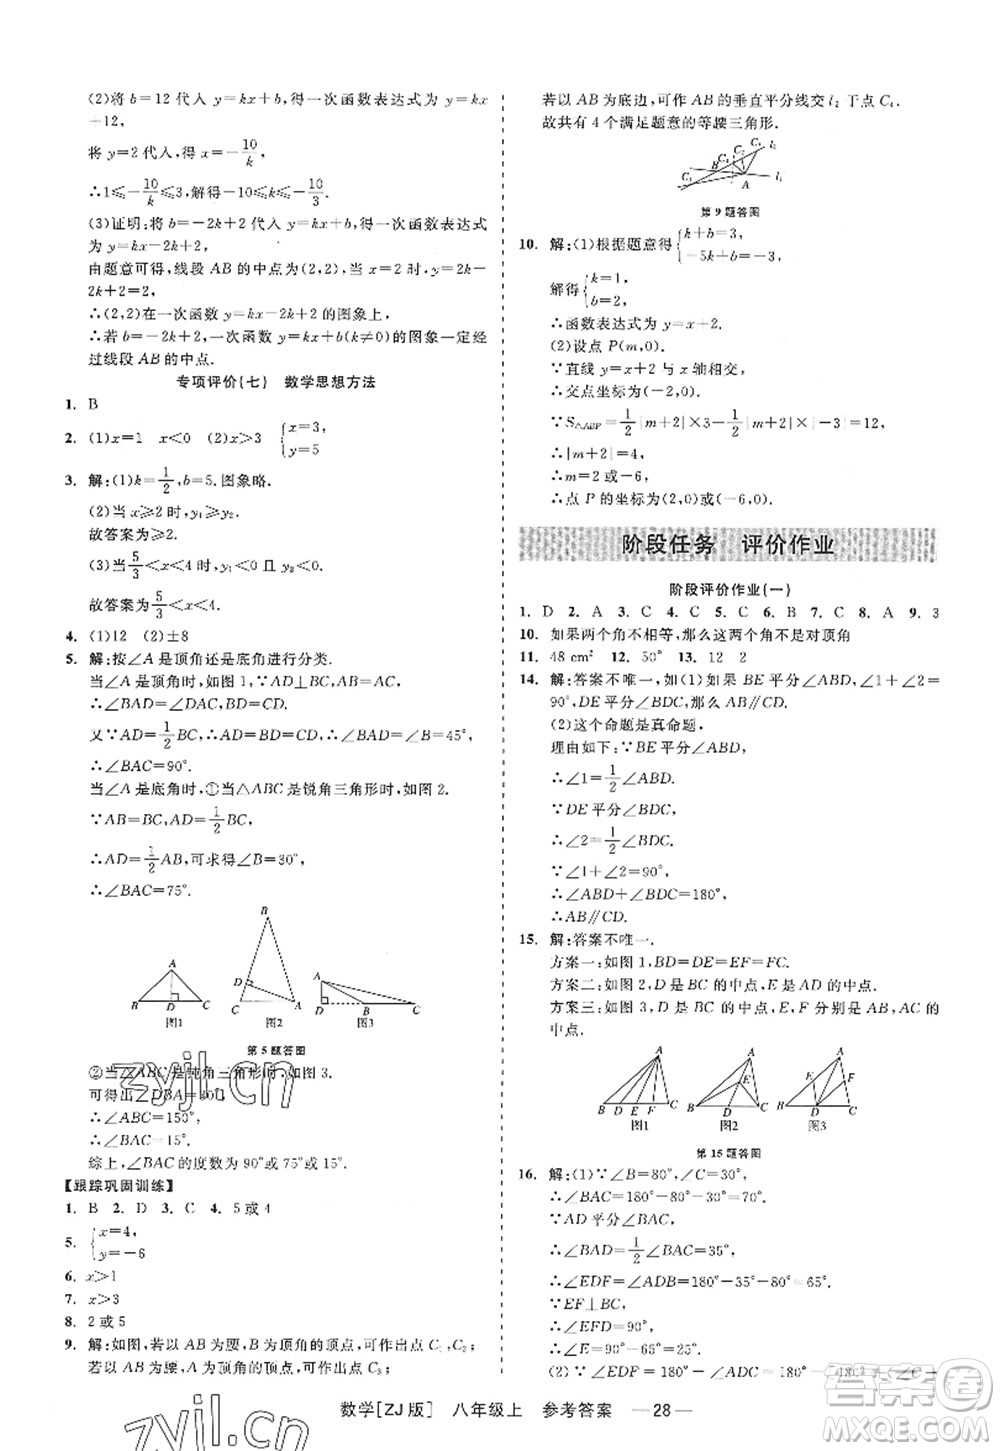 (2)将 b=12 代入 y=kx+b,得一次函数表达式为 y=kx
+12,
将 y=2 代入,得 x=-10/k,
∴1≤-10/k≤3,解得-10≤k≤-10/3.
(3)证明:将 b=-2k+2 代入 y=kx+b,得一次函数表达式
为 y=kx-2k+2,
由题意可得,线段 AB 的中点为(2,2),当 x=2 时,y=2k
-2k+2=2,
∴(2,2)在一次函数 y=kx-2k+2 的图象上,
∴若 b=-2k+2,一次函数 y=kx+b(k≠0)的图象一定经
过线段 AB 的中点.
专项评价(七) 数学思想方法
1. B
2. (1)x=1 x<0 (2)x>3 {x=3,
y=5
3. 解:(1)k=1/2,b=5.图象略.
(2)当 x≥2 时,y₁≥y₂.
故答案为≥2.
(3)当 5/3<x<4 时,y₁>0 且 y₂>0.
故答案为 5/3<x<4.
4. (1)12 (2)±8
5. 解:按∠A 是顶角还是底角进行分类.
当∠A 是顶角时,如图 1,∵AD⊥BC,AB=AC,
∴∠BAD=∠DAC,BD=CD.
又∵AD=1/2BC,∴AD=BD=CD,∴∠BAD=∠B=45°,
∴∠BAC=90°.
当∠A 是底角时,①当△ABC 是锐角三角形时,如图 2.
∵AB=BC,AD=1/2BC,
∴AD=1/2AB,可求得∠B=30°,
∴∠BAC=75°.
A B D C 图1
B D A C 图2
A D B C 图3
第 5 题答图
②当△ABC 是钝角三角形时,如图 3.
可得出∠DBA=30°,
∴∠ABC=150°,
∴∠BAC=15°.
综上,∠BAC 的度数为 90°或 75°或 15°.
【跟踪巩固训练】
1. B 2. D 3. C 4. 5 或 4
5. {x=4,
y=-6
6. x>1
7. x>3
8. 2 或 5
9. 解:如图,若以 AB 为腰,B 为顶角的顶点,可作出点 C₁,C₂;
若以 AB 为腰,A 为顶角的顶点,可作出点 C₃;
若以 AB 为底边,可作 AB 的垂直平分线交 l₂ 于点 C₄.
故共有 4 个满足题意的等腰三角形.
第 9 题答图
10. 解:(1)根据题意得{k+b=3,
-5k+b=-3,
解得{k=1,
b=2.
∴函数表达式为 y=x+2.
(2)设点 P(m,0).
∵直线 y=x+2 与 x 轴相交,
∴交点坐标为(-2,0).
∵S△ABP=1/2|m+2|×3+1/2|m+2|×|-3|=12,
∴|m+2|=4.
∴m=2 或-6,
∴点 P 的坐标为(2,0)或(-6,0).
阶段任务 评价作业
阶段评价作业(一)
1. D 2. A 3. C 4. C 5. C 6. B 7. C 8. A 9. 3
10. 如果两个角不相等,那么这两个角不是对顶角
11. 48 cm² 12. 50° 13. 12 2
14. 解:答案不唯一,如(1)如果 BE 平分∠ABD,∠1+∠2=
90°,DE 平分∠BDC,那么 AB∥CD.
(2)这个命题是真命题,
理由如下:∵BE 平分∠ABD,
∴∠1=1/2∠ABD.
∵DE 平分∠BDC,
∴∠2=1/2∠BDC.
∵∠1+∠2=90°,
∴∠ABD+∠BDC=180°,
∴AB∥CD.
15. 解:答案不唯一.
方案一:如图 1,BD=DE=EF=FC.
方案二:如图 2,D 是 BC 的中点,E 是 AD 的中点.
方案三:如图 3,D 是 BC 的中点,E,F 分别是 AB,AC 的
中点.
A B D E F C 图1
A B D C E 图2
A B D C E F 图3
第 15 题答图
16. 解:(1)∵∠B=80°,∠C=30°,
∴∠BAC=180°-80°-30°=70°.
∵AD 平分∠BAC,
∴∠BAD=1/2∠BAC=35°,
∴∠EDF=∠ADB=180°-35°-80°=65°.
∵EF⊥BC,
∴∠EFD=90°,
∴∠E=90°-65°=25°.
(2)∵∠EDF=180°-∠ADC=180°-(180°-
数学[ZJ版] 八年级上 参考答案 —28—
zyjl.cn
zyjl.cn
答案圈